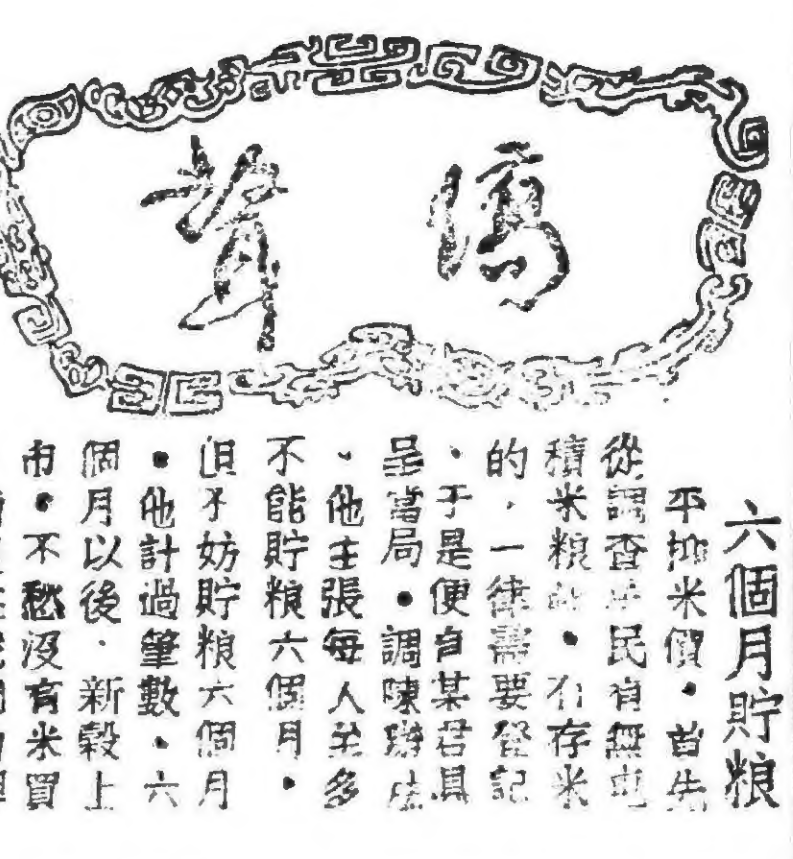 僑聲
六個月貯粮
平抑米價•首先
從調查平民有無屯
積米粮始•有存米
的,一律需要登記
、于是便有某君具
呈當局•調陳辦法
、他主張每人至多
不能貯粮六個月•
但不妨貯粮六個月
•他計過筆數•六
個月以後•新穀上
市•不愁沒有米買